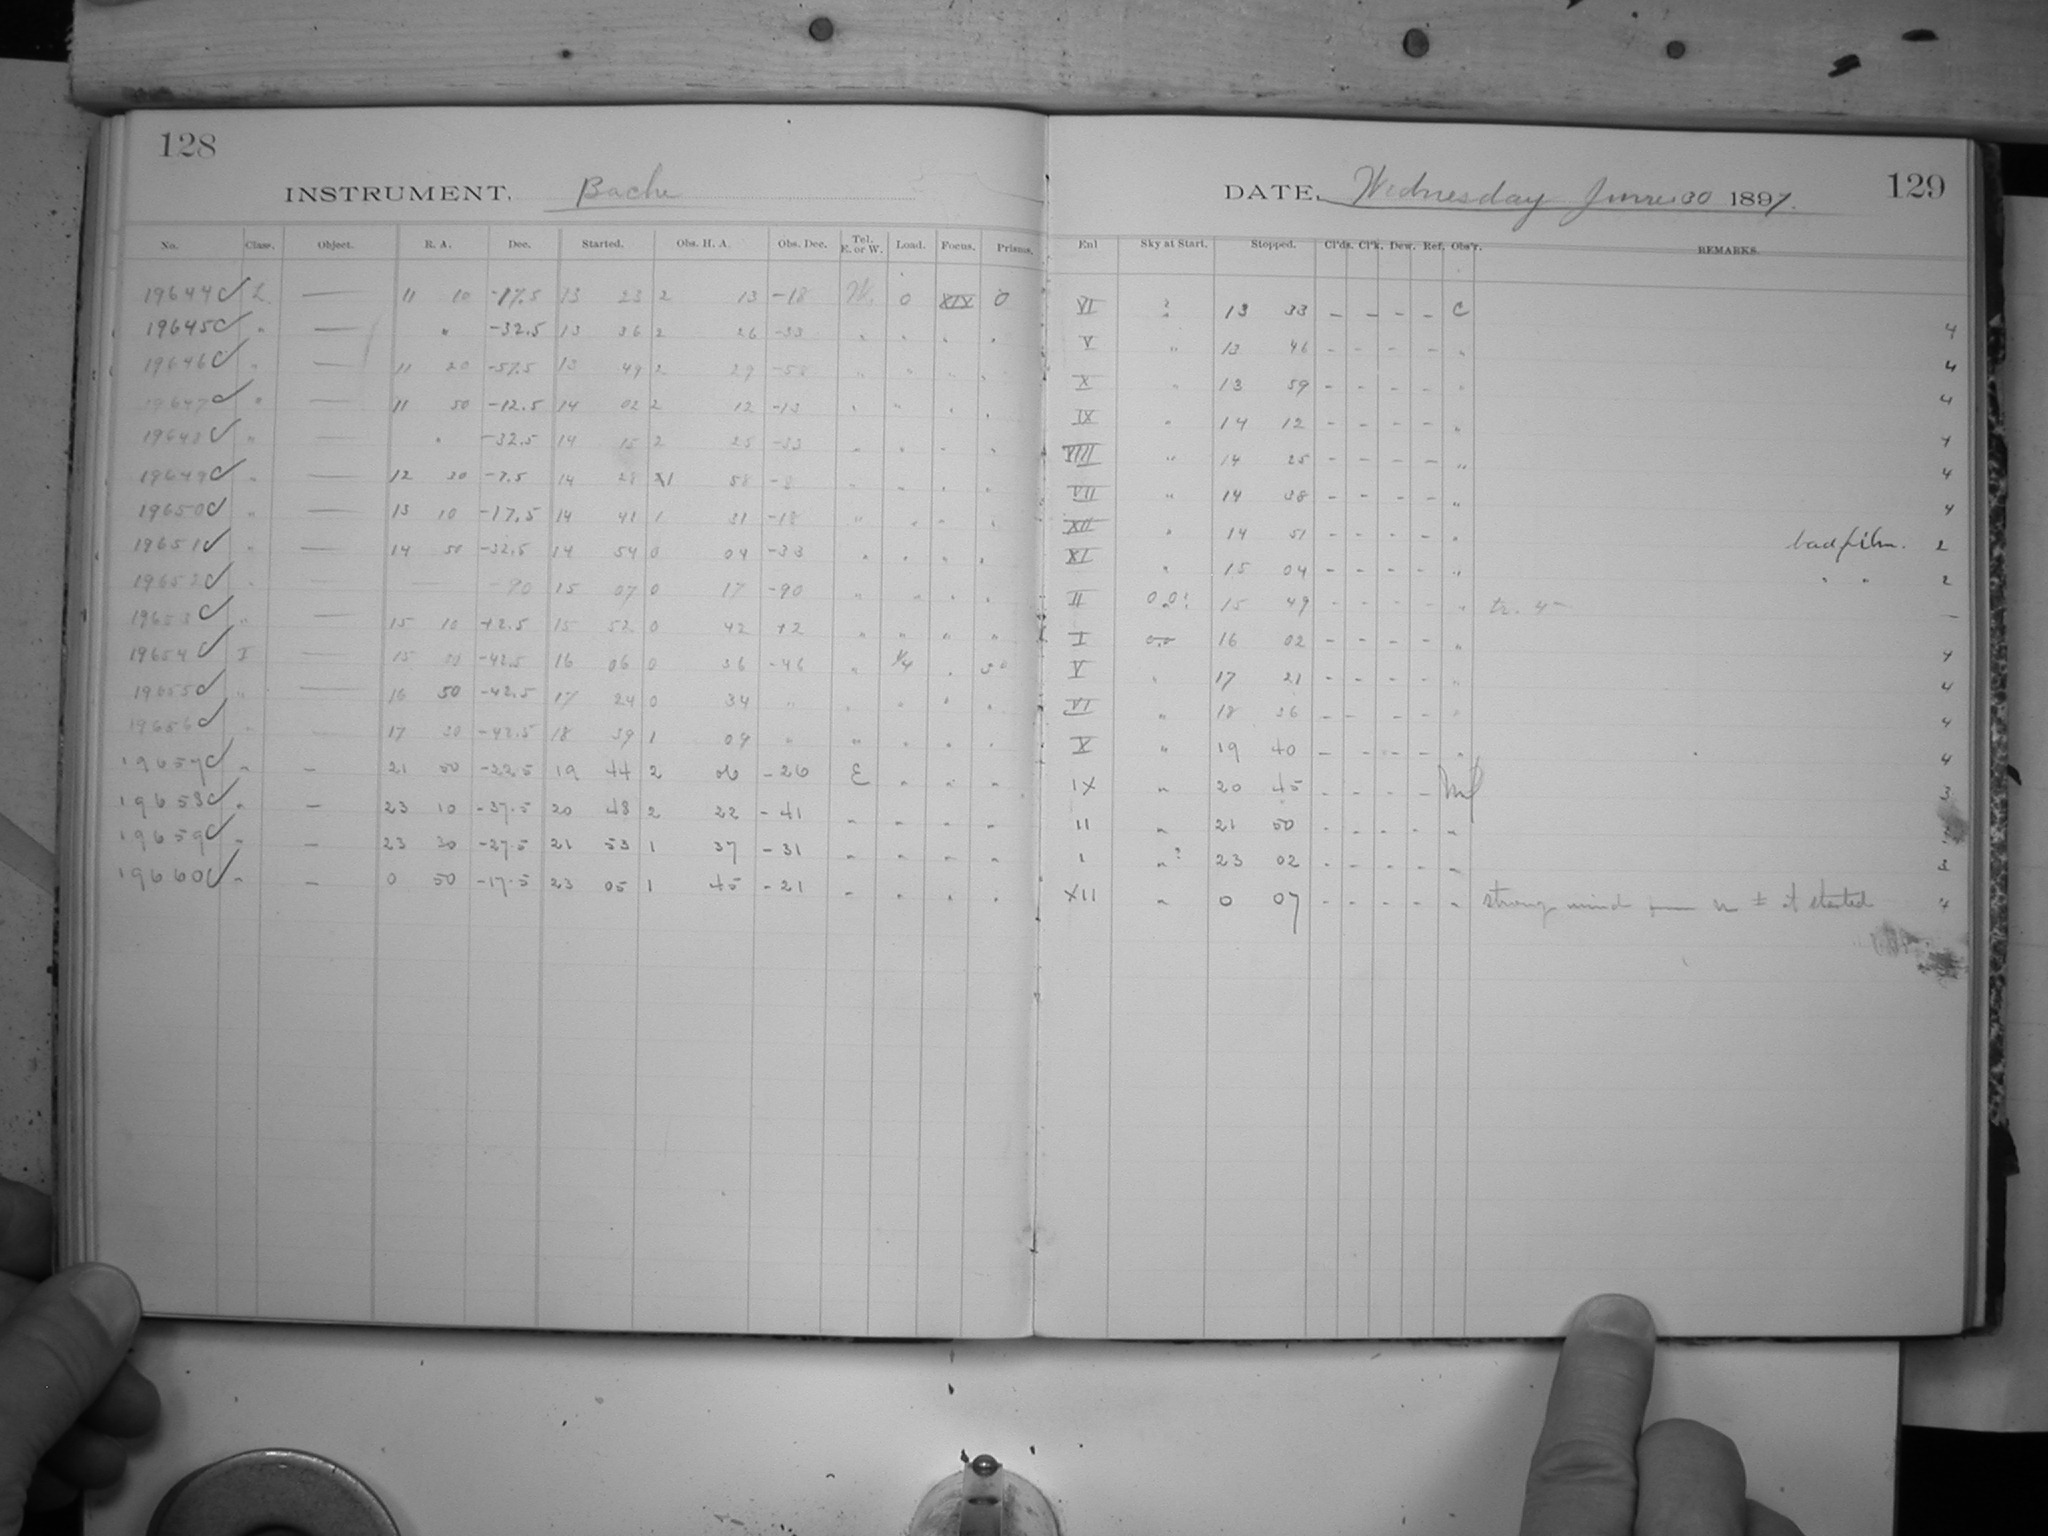 128
INSTRUMENT, Bache
No. Class. Object. R. A. Dec. Started. Obs. H. A. Obs. Dec. Tel. E. or W. Load. Focus. Prisms.
19644 L — 11 10 -17.5 13 23 2 13 -18 W. 0 XIX 0
19645 " — " -32.5 13 36 2 26 -33 " " " "
19646 " — 11 20 -57.5 13 49 2 29 -58 " " " "
19647 " — 11 50 -12.5 14 02 2 12 -13 " " " "
19648 " — " -32.5 14 15 2 25 -33 " " " "
19649 " — 12 30 -7.5 14 28 X1 58 -8 " " " "
19650 " — 13 10 -17.5 14 41 1 31 -18 " " " "
19651 " — 14 50 -32.5 14 54 0 04 -33 " " " "
19652 " — — -90 15 07 0 17 -90 " " " "
19653 " — 15 10 +2.5 15 52 0 42 +2 " " " "
19654 I — 15 -42.5 16 06 0 36 -46 " 1/4 "
19655 " — 16 50 -42.5 17 24 0 34 " " " " "
19656 " — 17 30 -42.5 18 39 1 09 " " " " "
19657 " — 21 50 -22.5 19 44 2 06 -26 E " " "
19658 " — 23 10 -37.5 20 48 2 22 -41 " " " "
19659 " — 23 30 -27.5 21 53 1 37 -31 " " " "
19660 " — 0 50 -17.5 23 05 1 45 -21 " " " "
129
DATE, Wednesday June 30 1897.
Enl Sky at Start. Stopped. Cl'ds. Cl'k. Dew. Ref. Obs'r. REMARKS.
VI ? 13 33 - - - - C 4
V " 13 46 - - - - " 4
X " 13 59 - - - - " 4
IX " 14 12 - - - - " 4
VIII " 14 25 - - - - " 4
VII " 14 38 - - - - " 4
XII " 14 51 - - - - " bad film. 2
XI " 15 04 - - - - " " " 2
II 15 49 - - - - " tr. —
I 16 02 - - - - " 4
V " 17 21 - - - - " 4
VI " 18 36 - - - - " 4
X " 19 40 - - - - " 4
IX " 20 45 - - - - 3
II " 21 50 - - - - "
I " ? 23 02 - - - - " 3
XII " 0 07 - - - - " strong wind at started 4